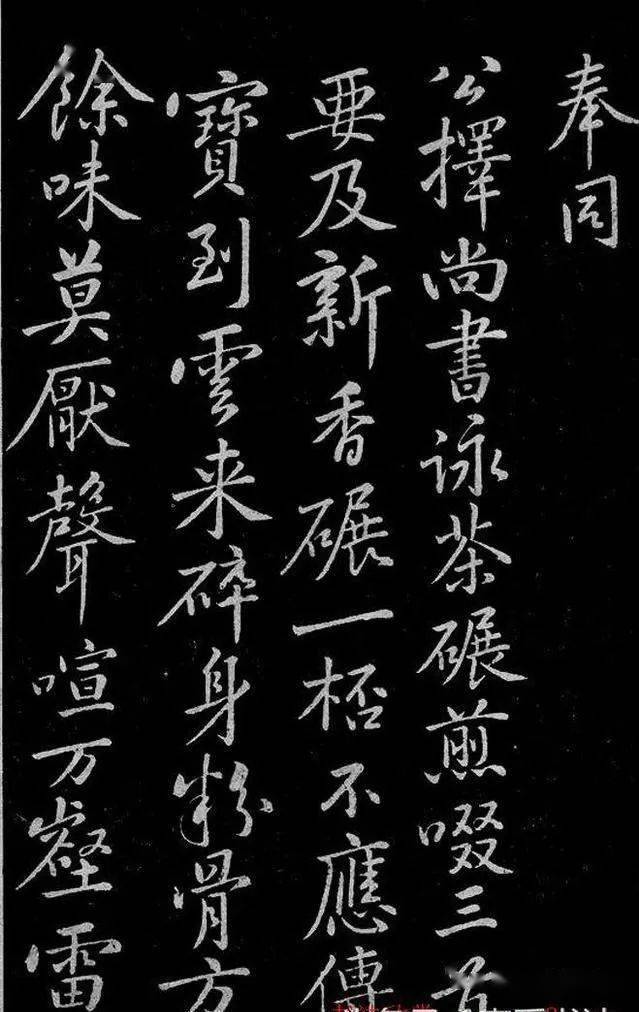 奉同
公擇尚書詠茶碾煎啜三首
要及新香碾一桮不應傳
寶到雲来碎身粉骨方
餘味莫厭聲喧万壑雷